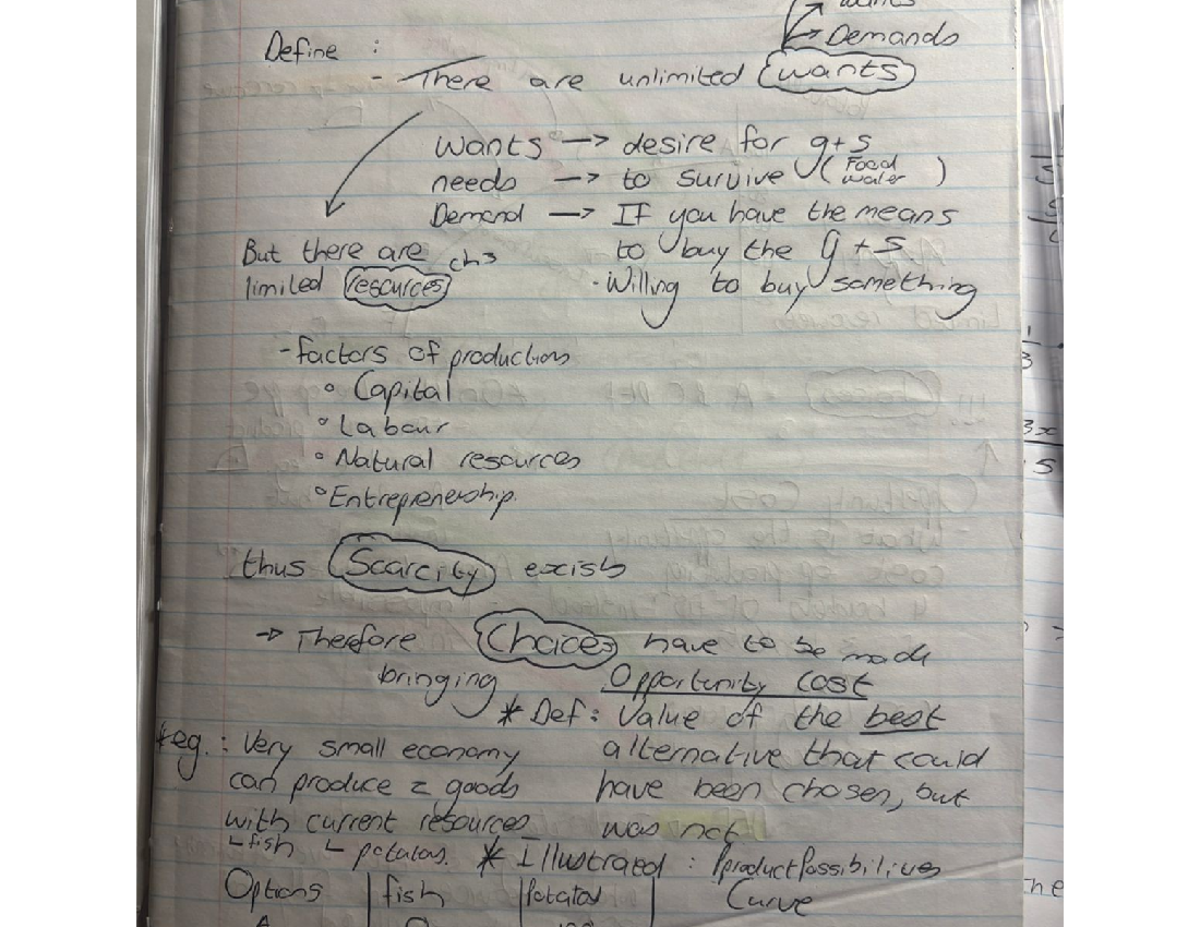 Demands
Define :
- There are unlimited wants
Wants -> desire for g+s
needs -> to survive (Food water)
Demand -> If you have the means
to buy the g+s
· Willing to buy something
But there are
limited resources ch3
- factors of production
° Capital
° Labour
° Natural resources
° Entreprenership.
thus Scarcity exists
-> Therefore Choices have to be made
bringing Opportunity cost
* Def : Value of the best
alternative that could
have been chosen, but
was not
*eg. : Very small economy
can produce 2 goods
with current resources
└ fish └ potatoes.
* Illustrated : Product Possibilities
Curve
Options | fish | Potatoes
A 0